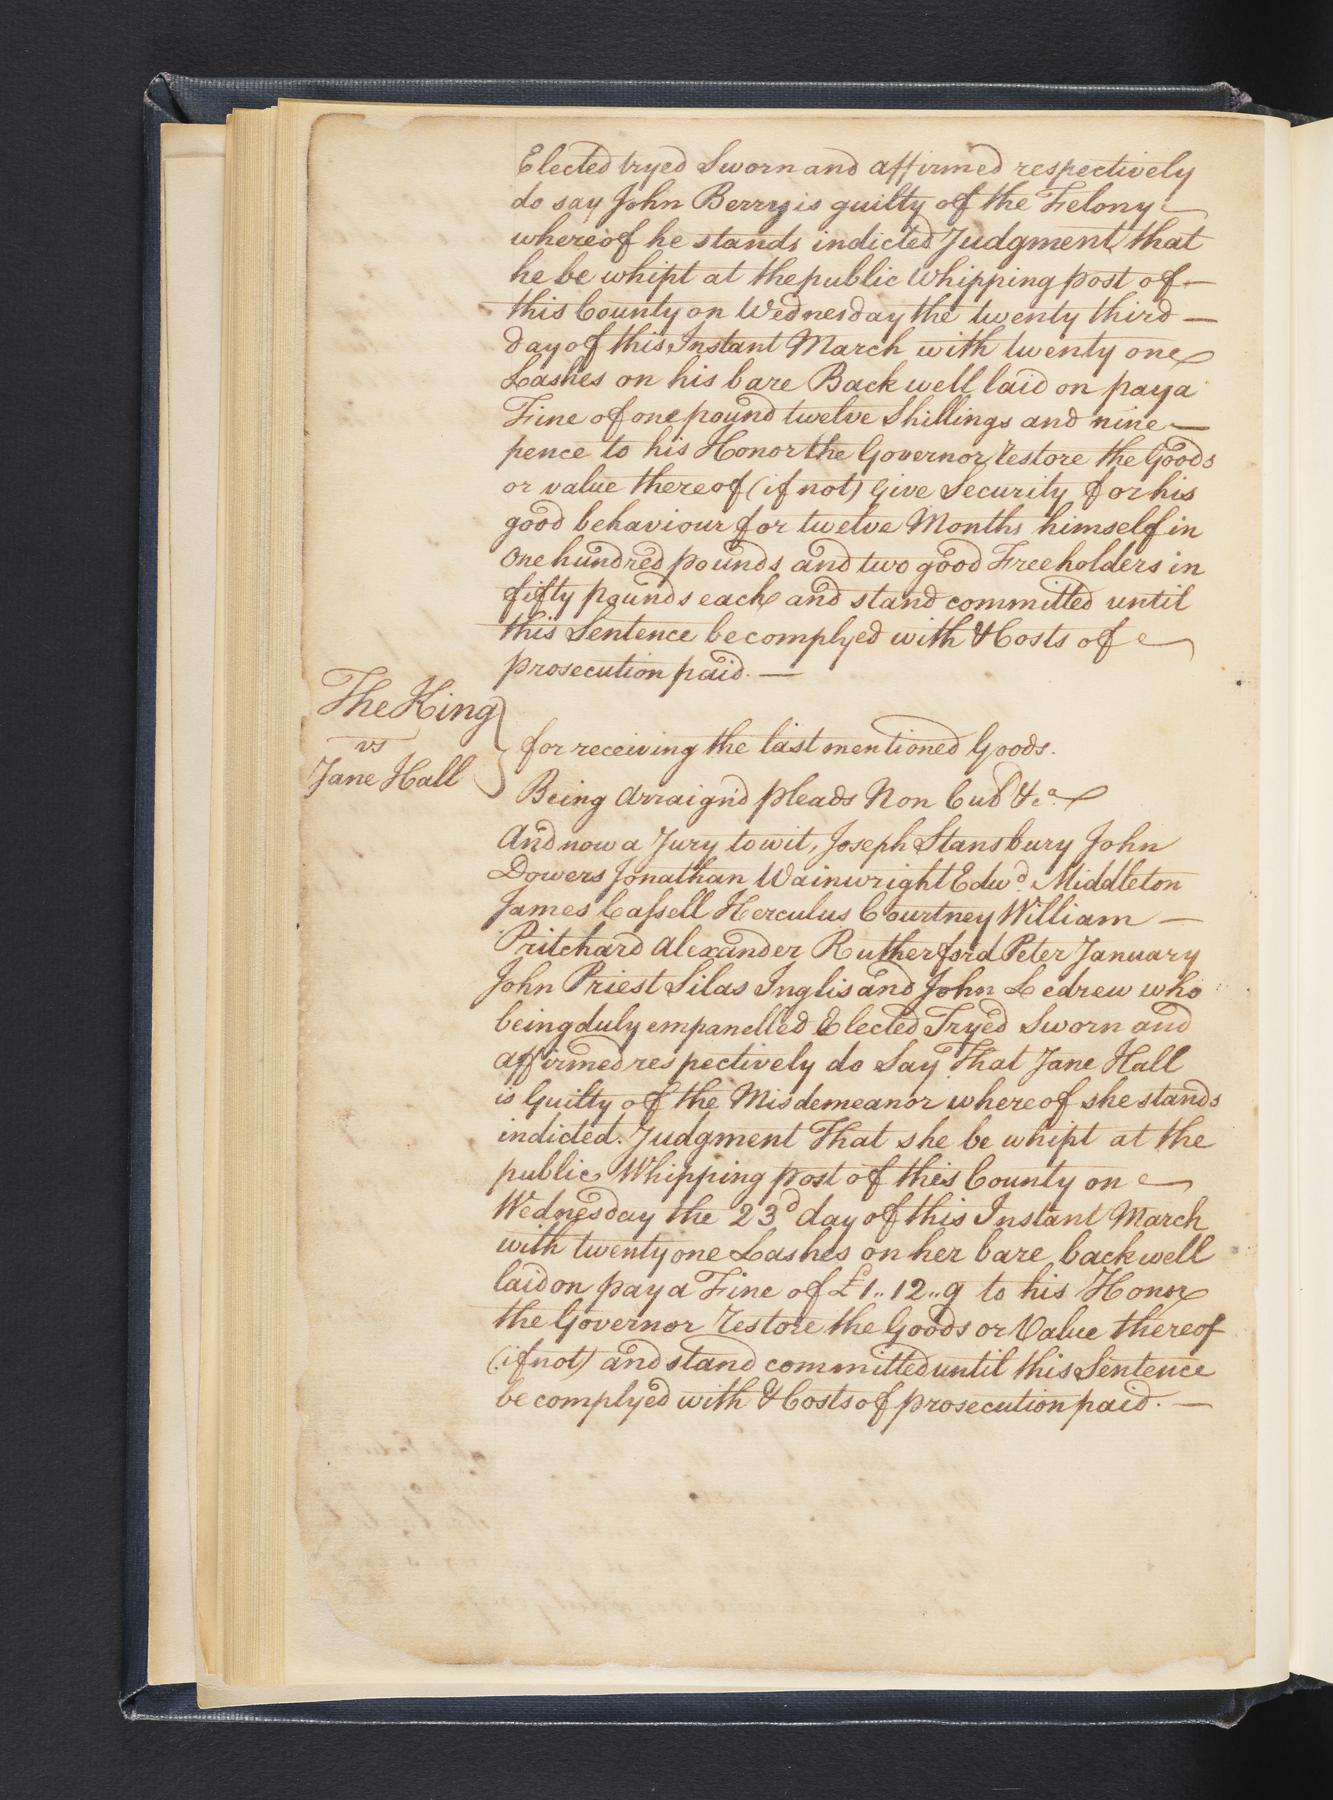 Elected tryed Sworn and affirmed respectively
do say John Berry is guilty of the Felony
whereof he stands indicted Judgment that
he be whipt at the public Whipping post of —
this County on Wednesday the twenty third —
day of this Instant March with twenty one
Lashes on his bare Back well laid on pay a
Fine of one pound twelve Shillings and nine —
pence to his Honor the Governor restore the Goods
or value thereof (if not) give Security for his
good behaviour for twelve Months himself in
One hundred pounds and two good Freeholders in
fifty pounds each and stand committed until
this Sentence be complyed with & Costs of
prosecution paid. —
The King
vs
Jane Hall
for receiving the last mentioned Goods.
Being Arraign'd pleads Non Cul &c.a
And now a Jury to wit, Joseph Stansbury John
Dowers Jonathan Wainwright Edwd. Middleton
James Cassell Herculus Courtney William —
Pritchard Alexander Rutherford Peter January
John Priest Silas Inglis and John Ledrew who
being duly empanelled Elected Tryed Sworn and
affirmed respectively do Say That Jane Hall
is Guilty of the Misdemeanor whereof she stands
indicted. Judgment That she be whipt at the
public Whipping post of this County on
Wednesday the 23d day of this Instant March
with twenty one Lashes on her bare back well
laid on pay a Fine of £1..12..9 to his Honor
the Governor restore the Goods or Value thereof
(if not) and stand committed until this Sentence
be complyed with & Costs of prosecution paid. —